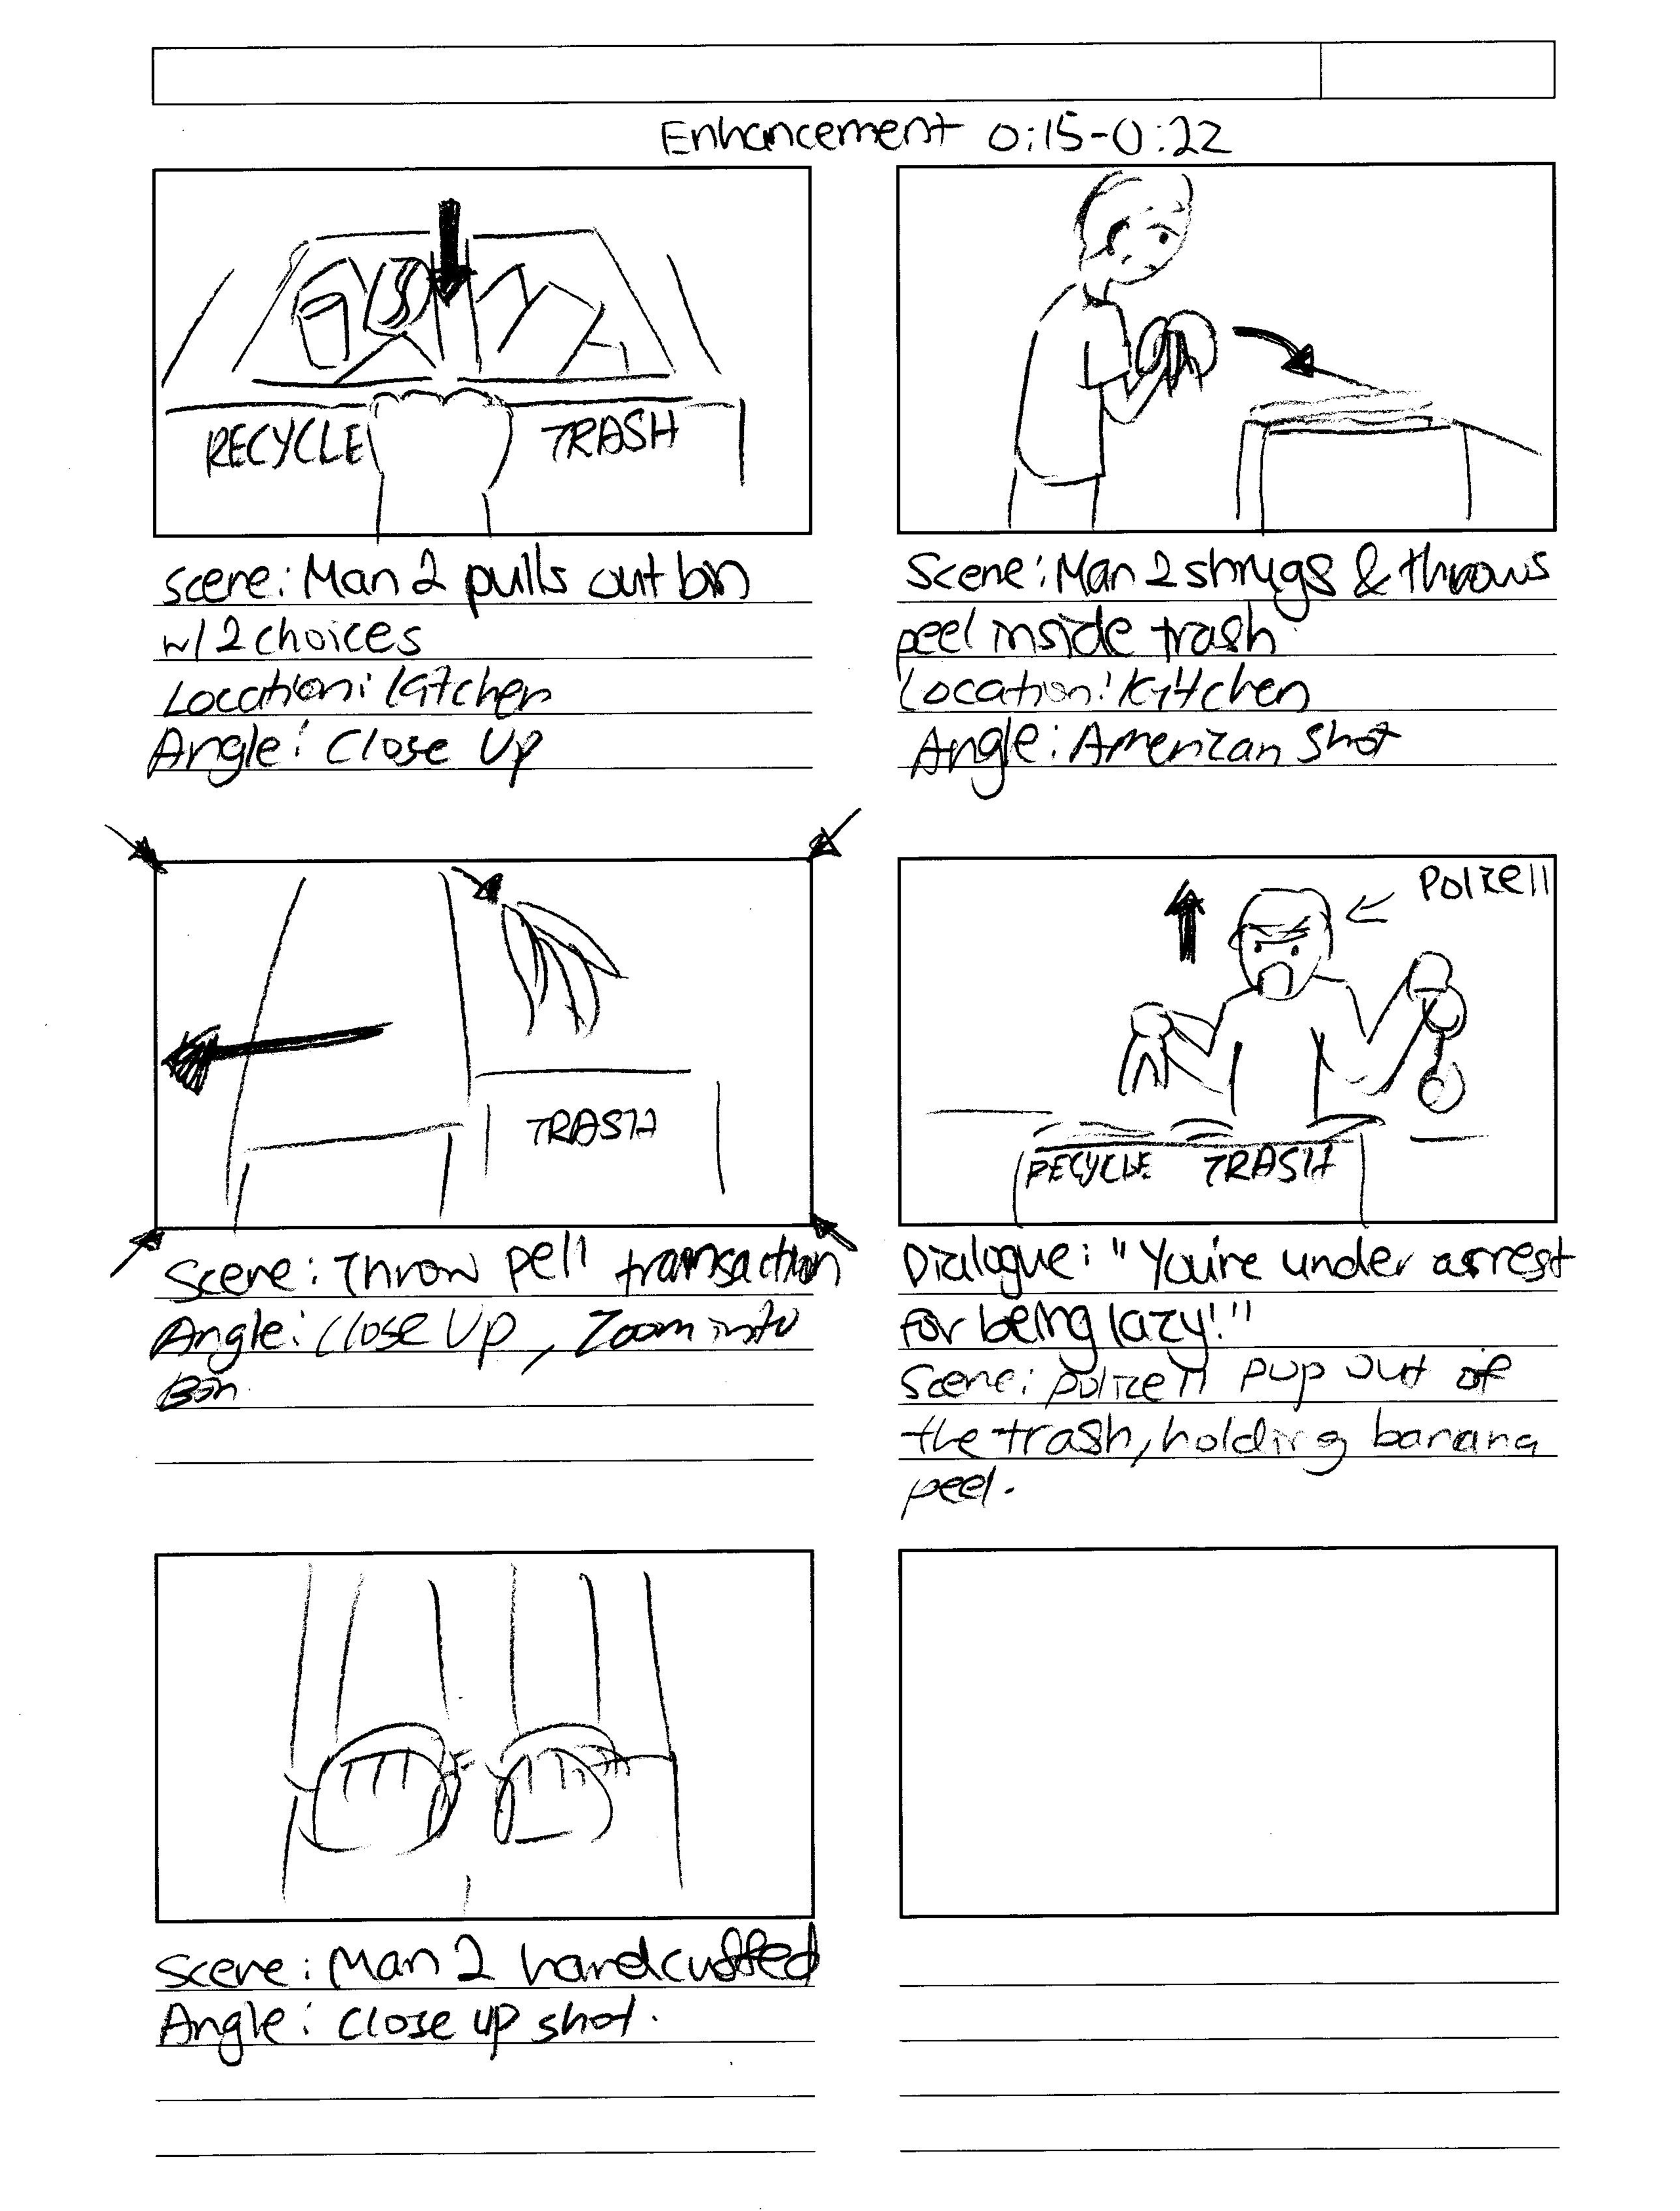 Enhancement 0:15-0:22
RECYCLE TRASH
Scene: Man 2 pulls out bin
w/ 2 choices
Location: Kitchen
Angle: Close Up
Scene: Man 2 shrugs & throws
peel inside trash
Location: Kitchen
Angle: American Shot
TRASH
Scene: Throw pell transaction
Angle: Close Up, Zoom into
Bin.
RECYCLE TRASH
Dialogue: "You're under arrest
for being lazy!"
Scene: pop out of
the trash, holding banana
peel.
Scene: Man 2 handcuffed
Angle: Close up shot.